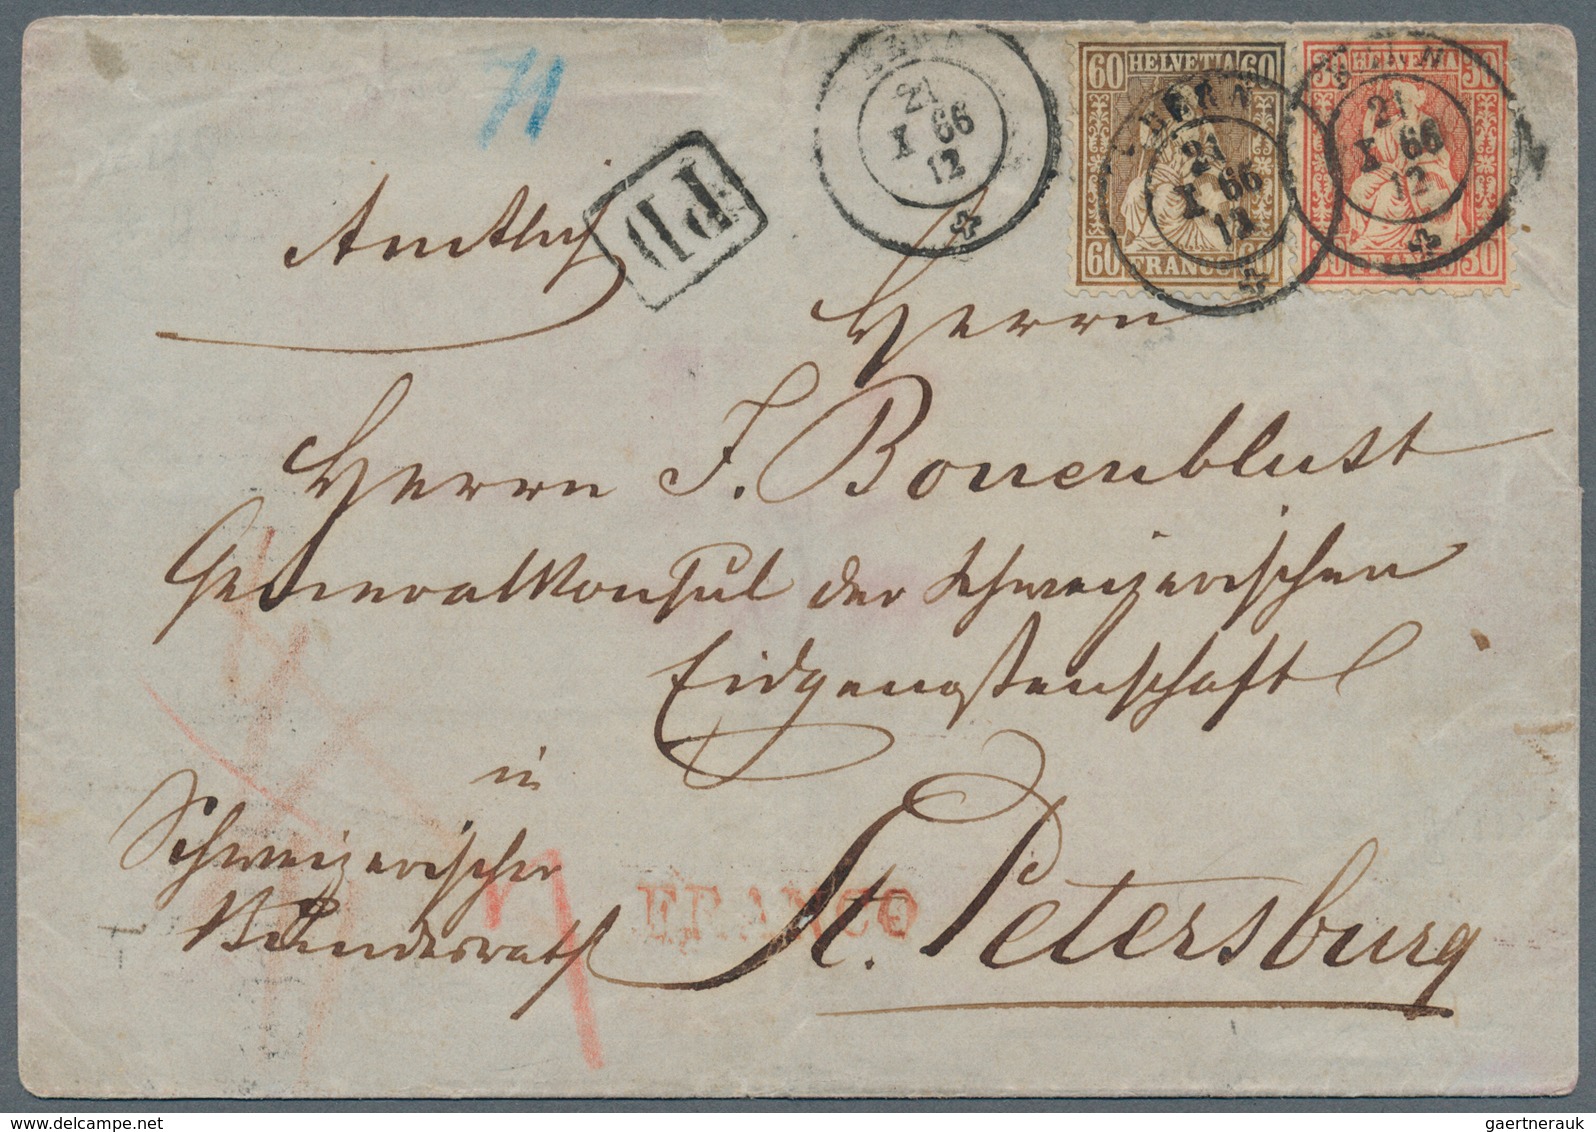 71
BERN
21
I 66
12
60 HELVETIA 60
BERN
21
I 66
12
60 FRANCO 60
30 HELVETIA 30
BERN
21
I 66
12
30 FRANCO 30
PD
Amtlich
Herrn
Herrn J. Bonenblust
Generalkonsul der schweizerischen
Eidgenoßenschaft
in
Schweizerischer
Bundesrath
FRANCO
St. Petersburg
gaertnerauk